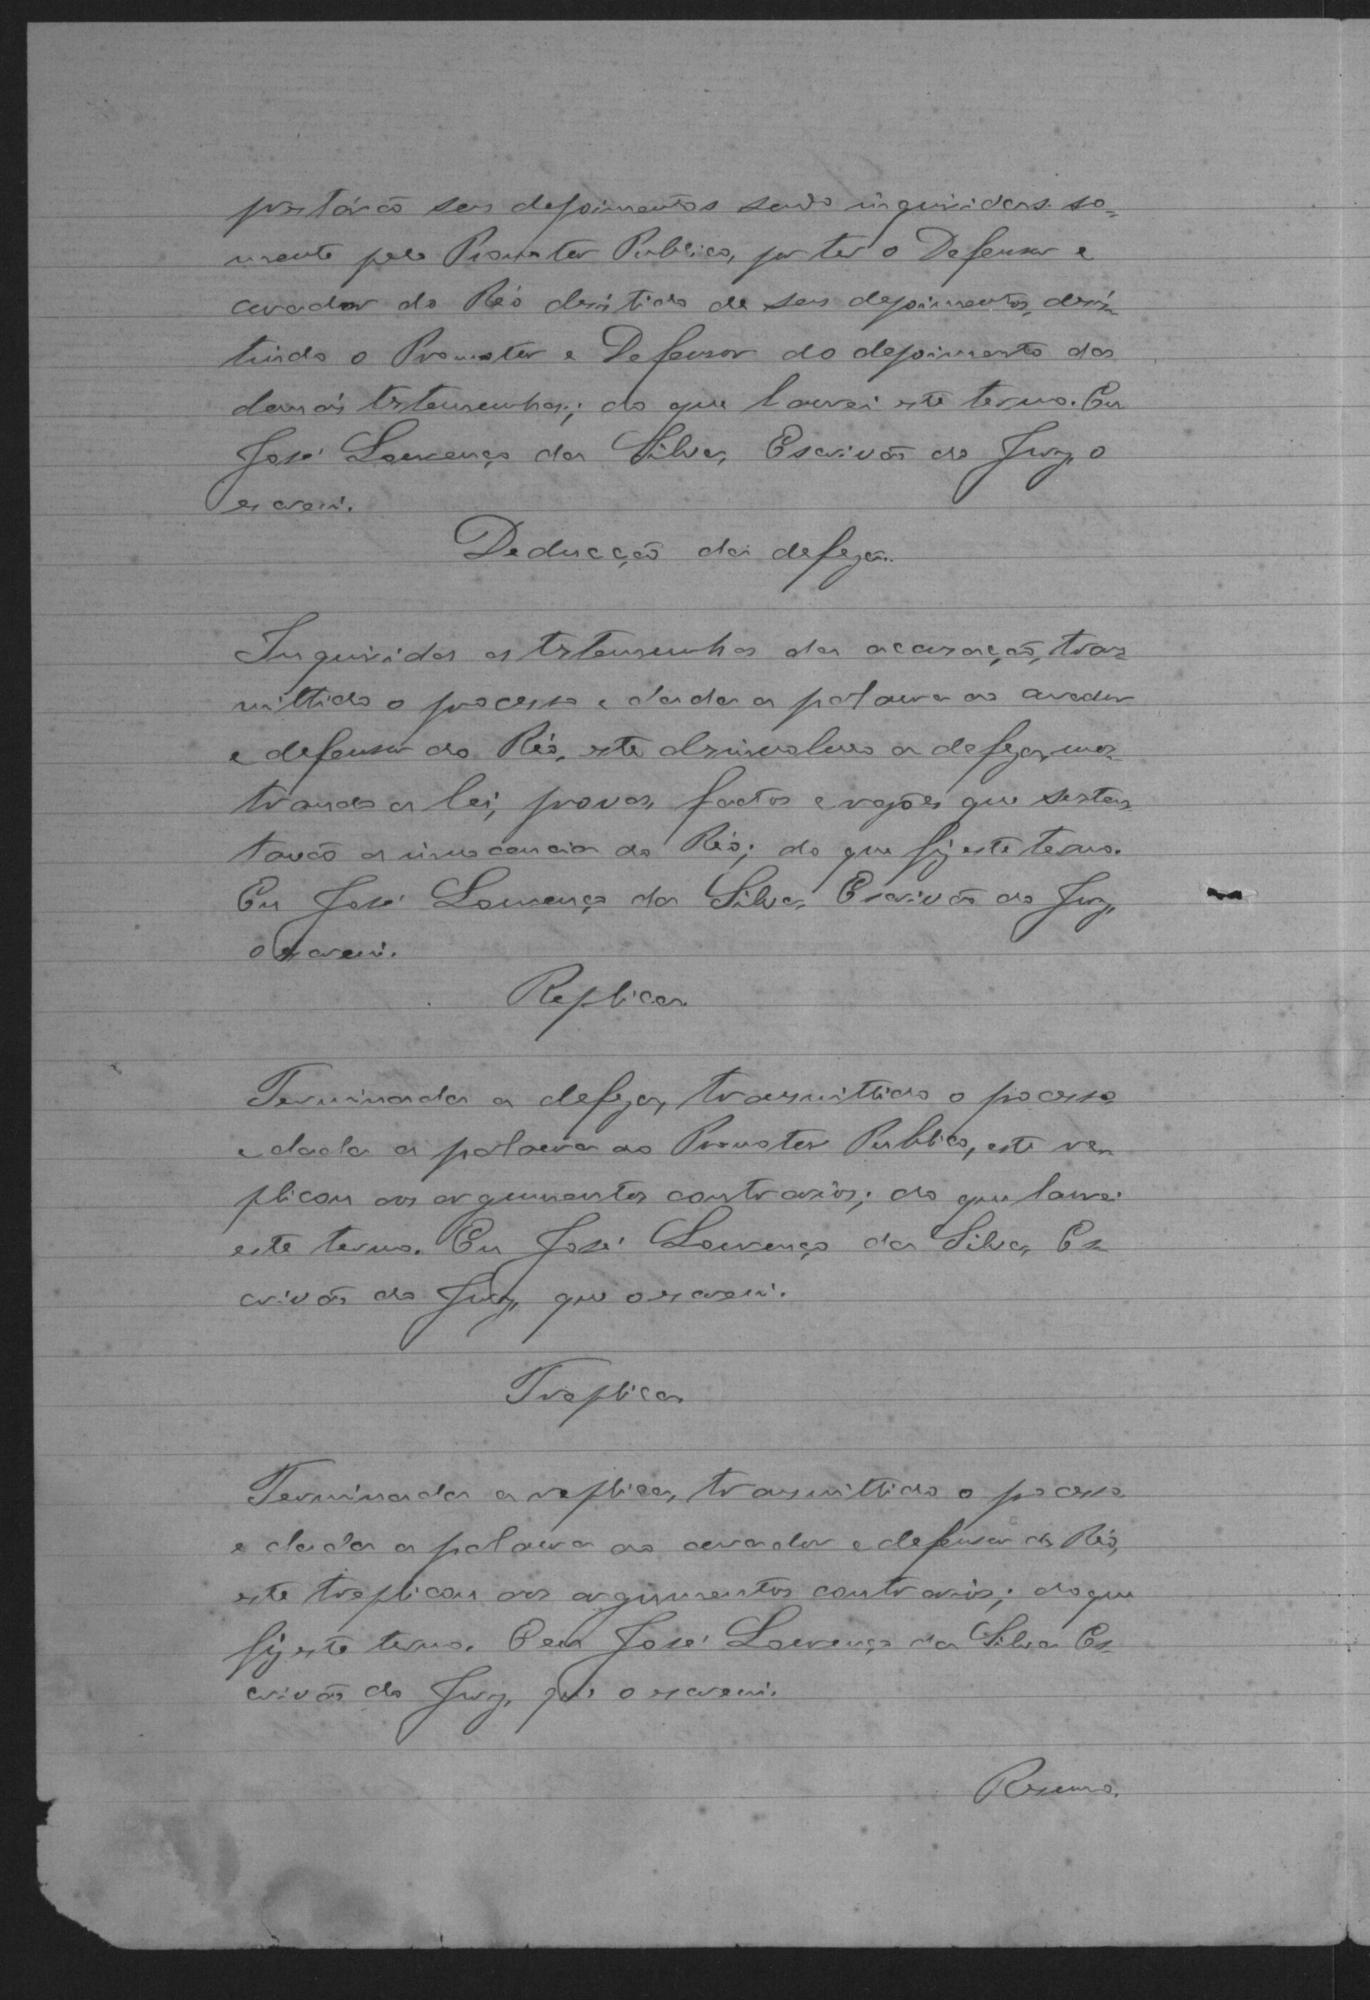 prestárão seus depoimentos sendo inquiridas so-
mente pelo Promotor Publico, por ter o Defensor e
curador do Réo desistido de seus depoimentos, desis-
tindo o Promotor e Defensor do depoimento das
demais testemunhas; do que lavrei este termo. Eu
José Lourenço da Silva, Escrivão do Jury, o
escrevi.
Deducção da defeza.
Inquiridas as testemunhas da accusação, trans-
mittido o processo e dada a palavra ao curador
e defensor do Réo, este desinvolveu a defeza, mos-
trando a lei, provas, factos e razões que susten-
tavão a innocencia do Réo; do que fiz este termo.
Eu José Lourenço da Silva, Escrivão do Jury,
o escrevi.
Replica
Terminada a defeza, transmittido o processo
e dada a palavra ao Promotor Publico, este re-
plicou aos argumentos contrarios; do que lavrei
este termo. Eu José Lourenço da Silva, Es-
crivão do Jury, que o escrevi.
Treplica
Terminada a replica, transmittido o processo
e dada a palavra ao curador e defensor do Réo,
este treplicou aos argumentos contrarios; do que
fiz este termo. Eu José Lourenço da Silva Es-
crivão do Jury, que o escrevi.
Resumo.